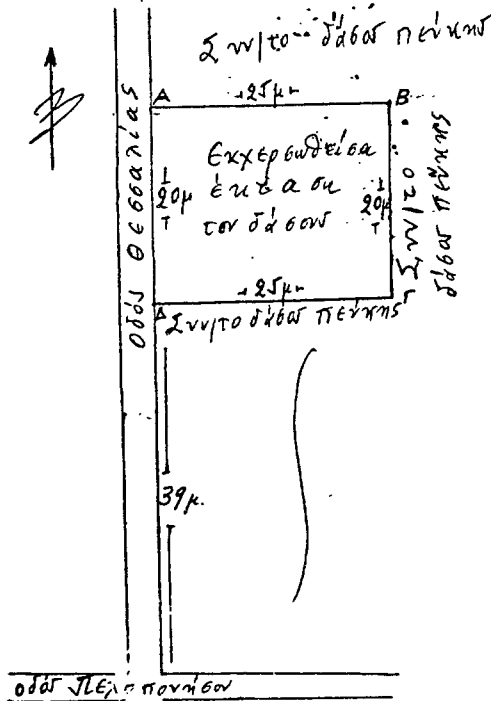 Συν/το δάσος πεύκης
A
25μ
B
Οδός Θεσσαλίας
20μ
Εκχερσωθείσα
έκτασις
του δάσους
20μ
Συν/το
δάσος πεύκης
25μ
Δ
Γ
Συν/το δάσος πεύκης
39μ.
οδός Πελοποννήσου